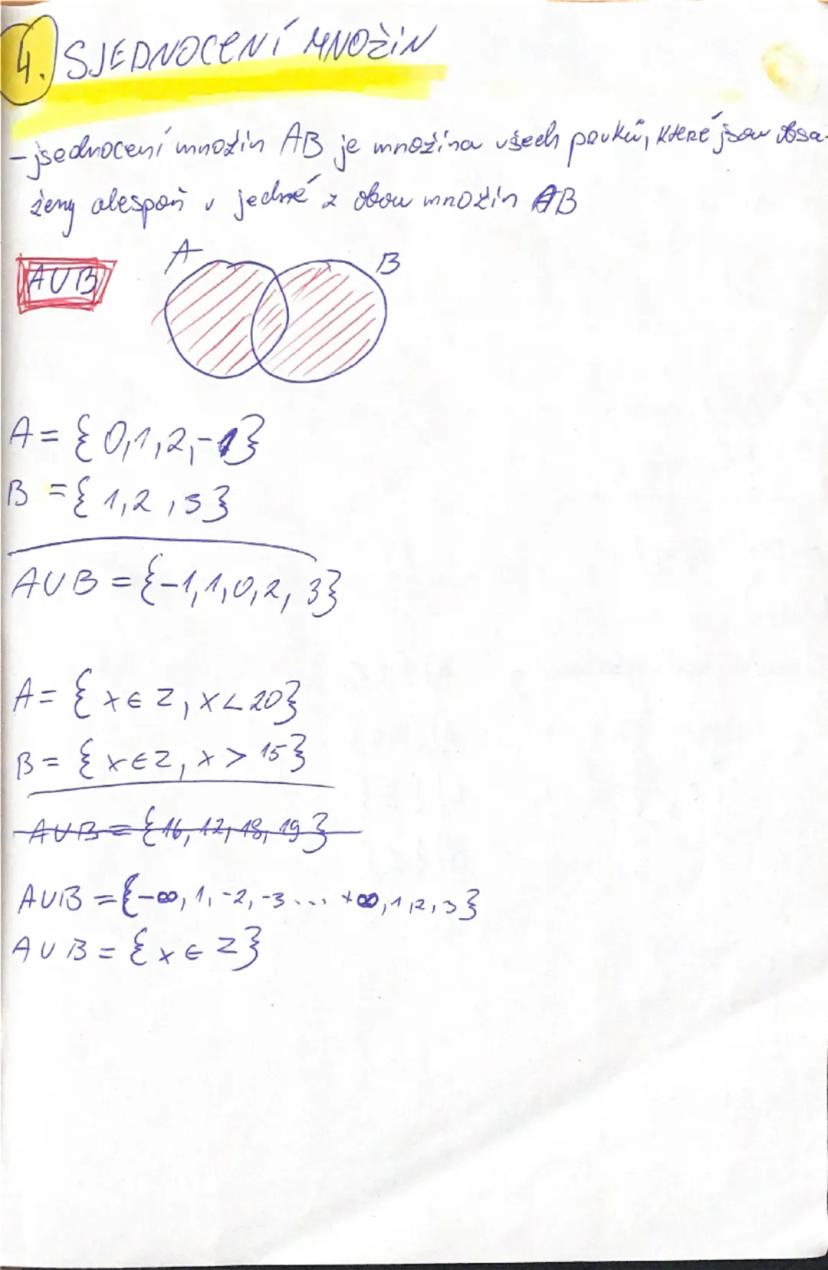 4. SJEDNOCENÍ MNOŽIN
- jsednocení množin AB je množina všech prvků, které jsou obsa-
ženy alespoň v jedné z obou množin AB
A∪B
A
B
A = { 0,1,2,-1}
B = { 1,2,3}
A∪B = {-1,1,0,2,3}
A = { x∈Z, x<20}
B = { x∈Z, x > 15}
A∪B = {16, 17, 18, 19}
A∪B = {-∞, 1, -2, -3... +∞, 1, 2, 3}
A∪B = { x ∈ Z}